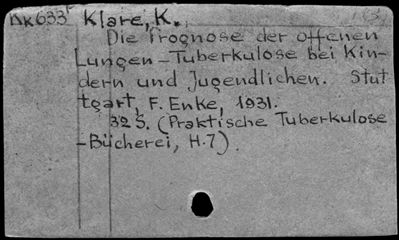 Kk633 Klare, K.
Die Prognose der offenen
Lungen-Tuberkulose bei Kin-
dern und Jugendlichen. Stut
tgart, F. Enke, 1931.
32 S. (Praktische Tuberkulose
-Bücherei, H.7)